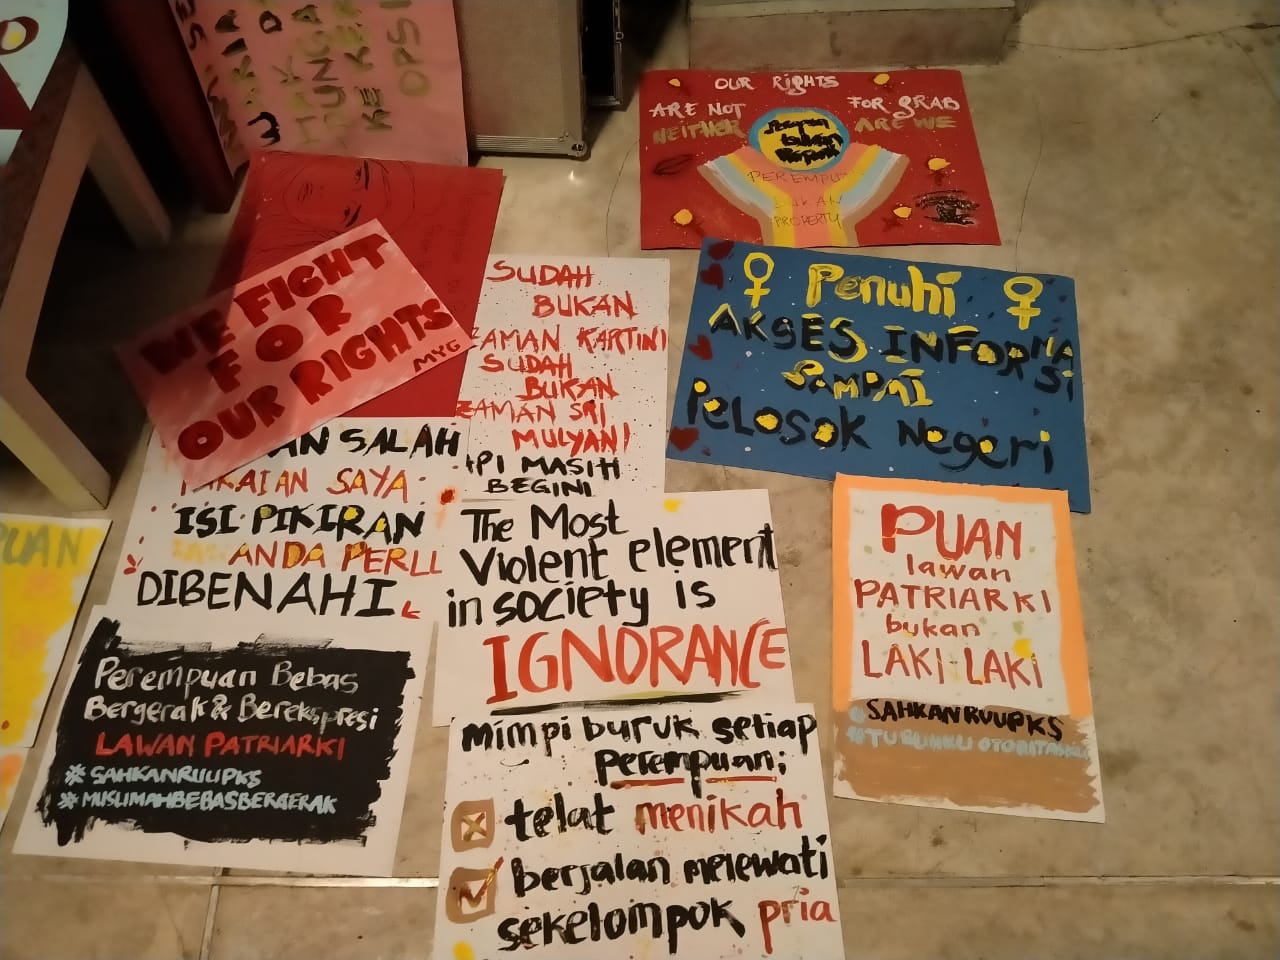 OUR RIGHTS
ARE NOT FOR GRAB
NEITHER ARE WE
PEREMPU
BUKAN
PROPERTY
WE FIGHT
FOR
OUR RIGHTS
MYG
SUDAH
BUKAN
ZAMAN KARTINI
SUDAH
BUKAN
ZAMAN SRI
MULYANI
API MASIH
BEGINI
Penuhi
AKSES INFORMASI
SAMPAI
PeLOSOK Negeri
AN SALAH
PAKAIAN SAYA
ISI PIKIRAN
ANDA PERLU
DIBENAHI
The Most
Violent element
in society is
IGNORANCE
PUAN
lawan
PATRIARKI
bukan
LAKI-LAKI
SAHKANRUUPKS
#TUBUHKU OTORITASKU
Perempuan Bebas
Bergerak & Berekspresi
LAWAN PATRIARKI
# SAHKANRUUPKS
# MUSLIMAHBEBASBERGERAK
mimpi buruk setiap
Perempuan:
telat menikah
berjalan melewati
sekelompok pria
PUAN